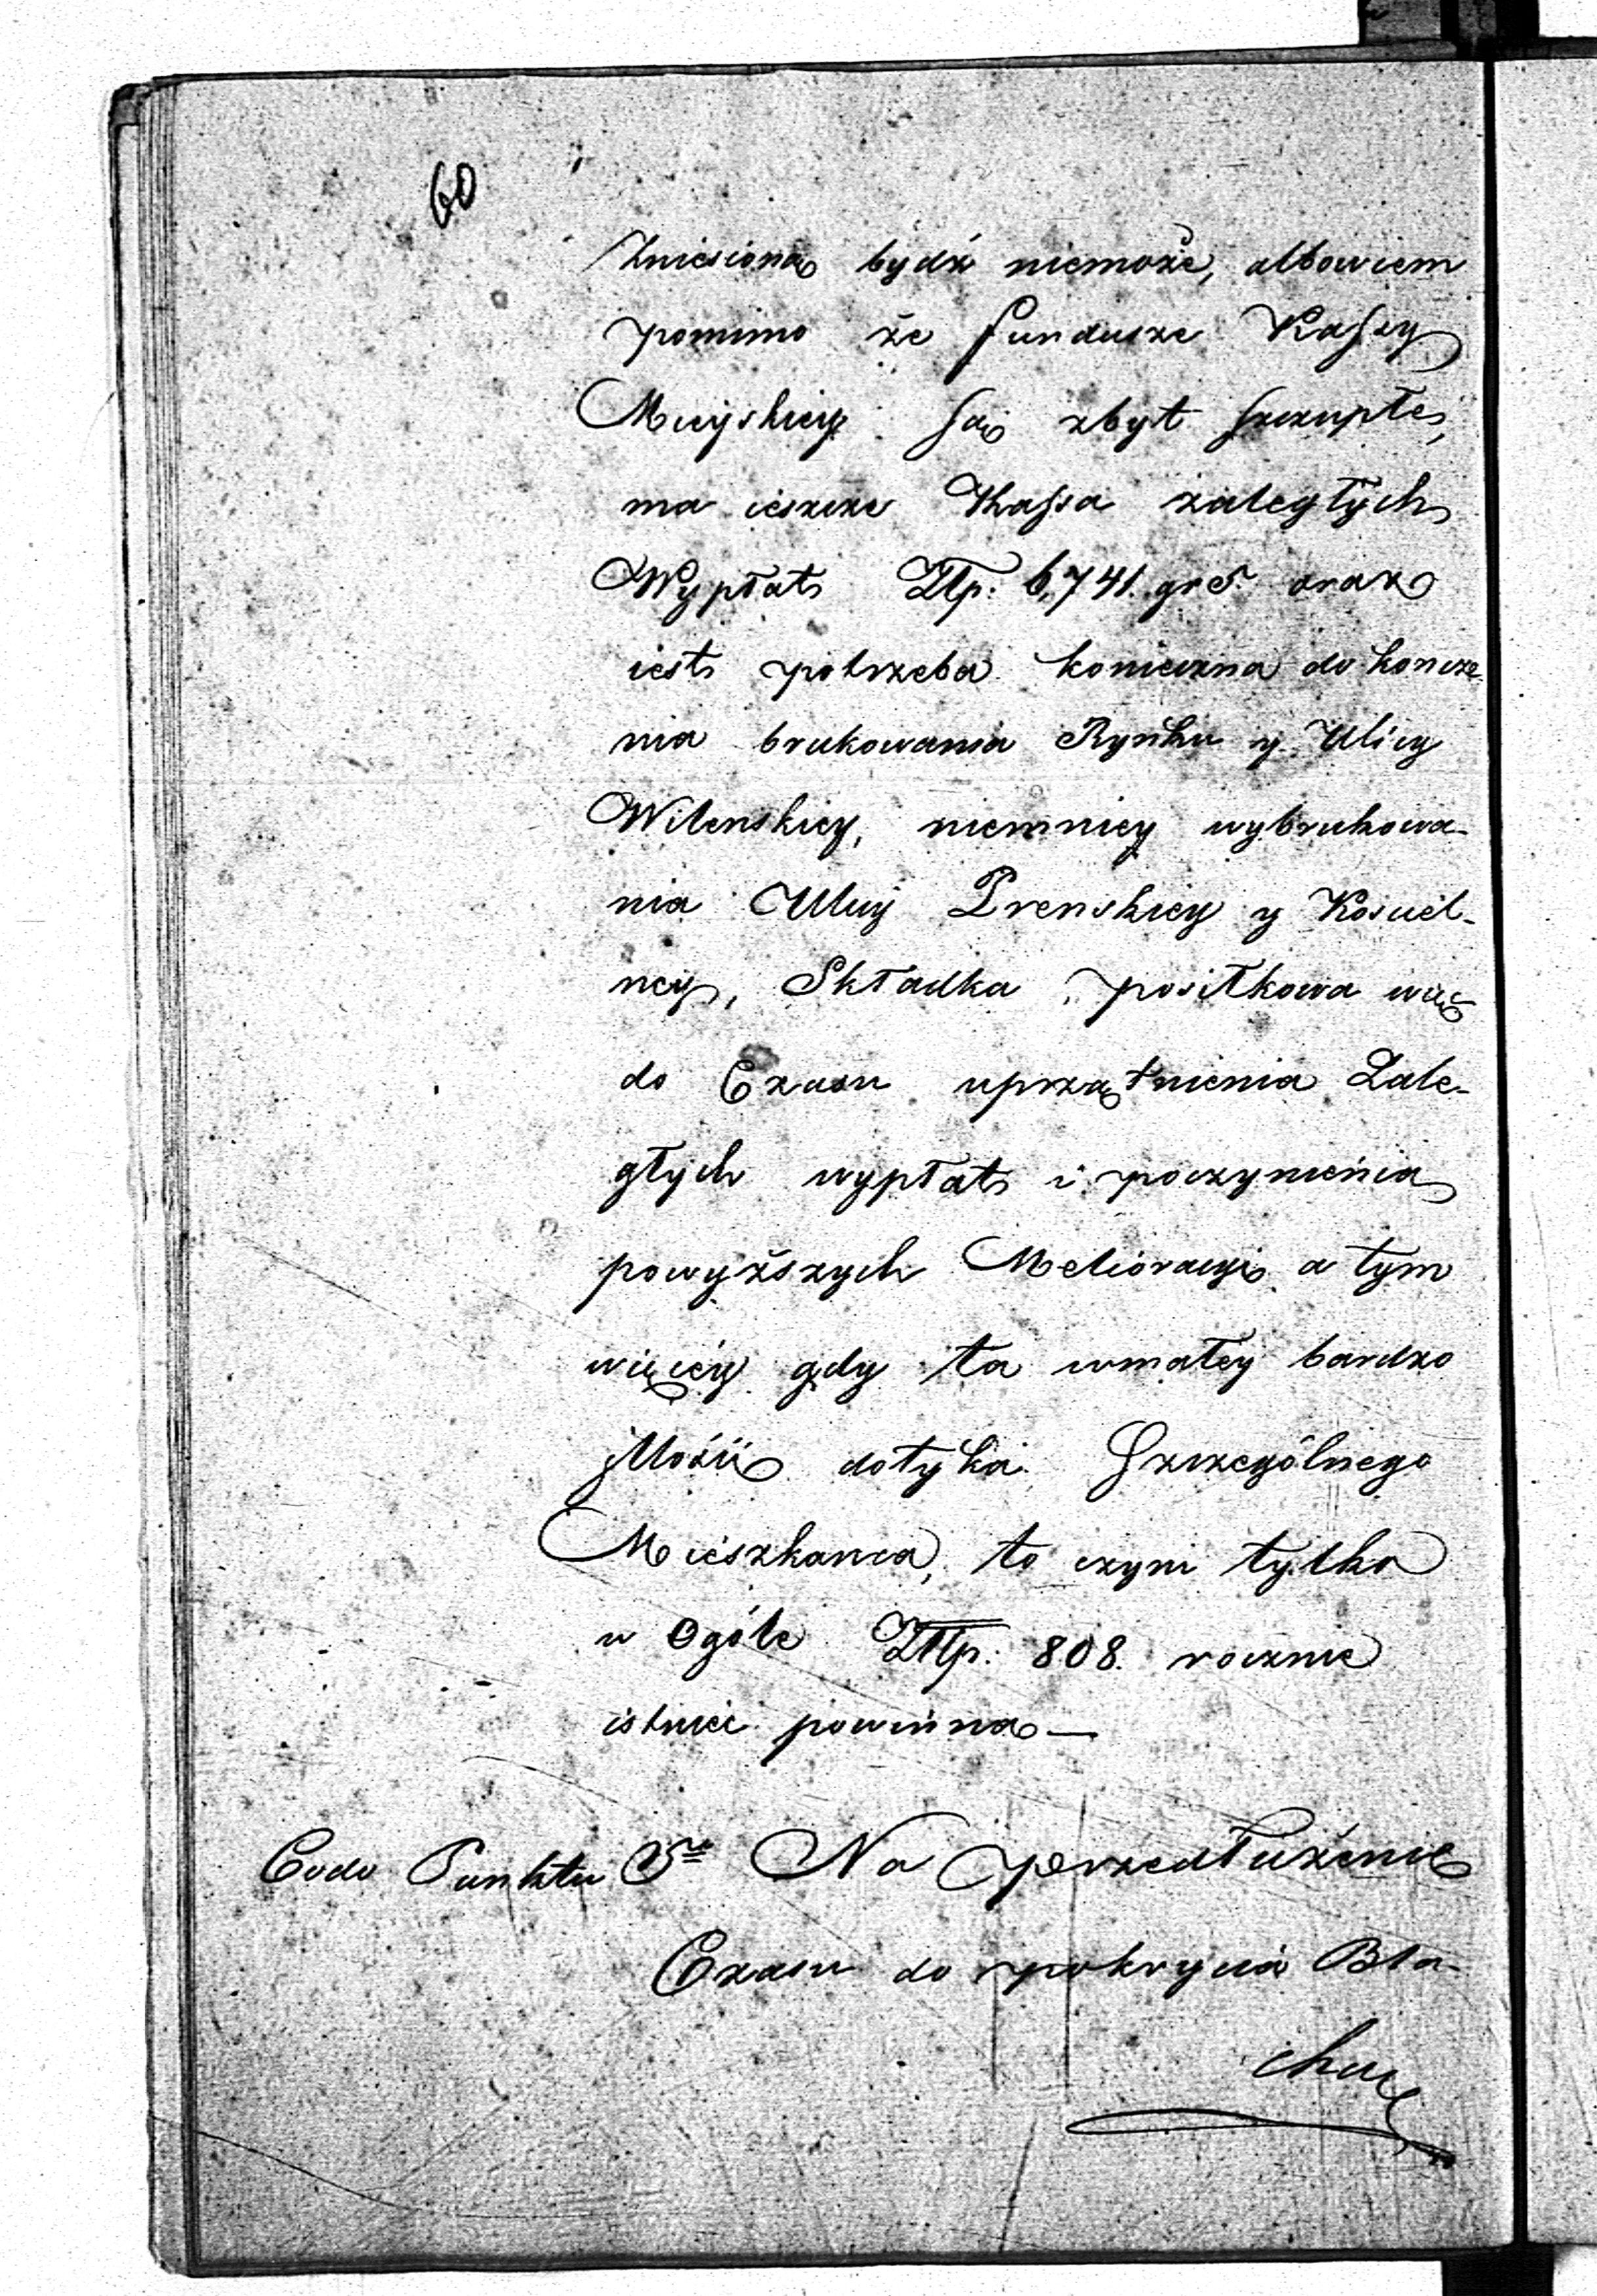 60
Zniesioną bydź niemoże, albowiem
pomimo że fundusze Kassy
Mieyskiey są zbyt szczupłe,
ma ieszcze Kassa zaległych
Wypłat Złłp. 6,741. gr 5. oraz
iest potrzeba konieczna dokończe-
nia brukowania Rynku y Ulicy
Wilenskiey, niemniey wybrukowa-
nia Ulicy Prenskiey y Kościel-
ney, Składka posiłkowa więc
do Czasu uprzątnienia Zale-
głych wypłat i poczynienia
powyższych Melioracyi a tym
więcéy gdy ta wmałey bardzo
jllości dotyka Szczególnego
Mieszkańca, to czyni tylko
w Ogóle Złłp. 808. rocznie
istnieć powinna —
Codo Punktu 5º Na przedłużenie
Czasu do pokrycia Da-
chu